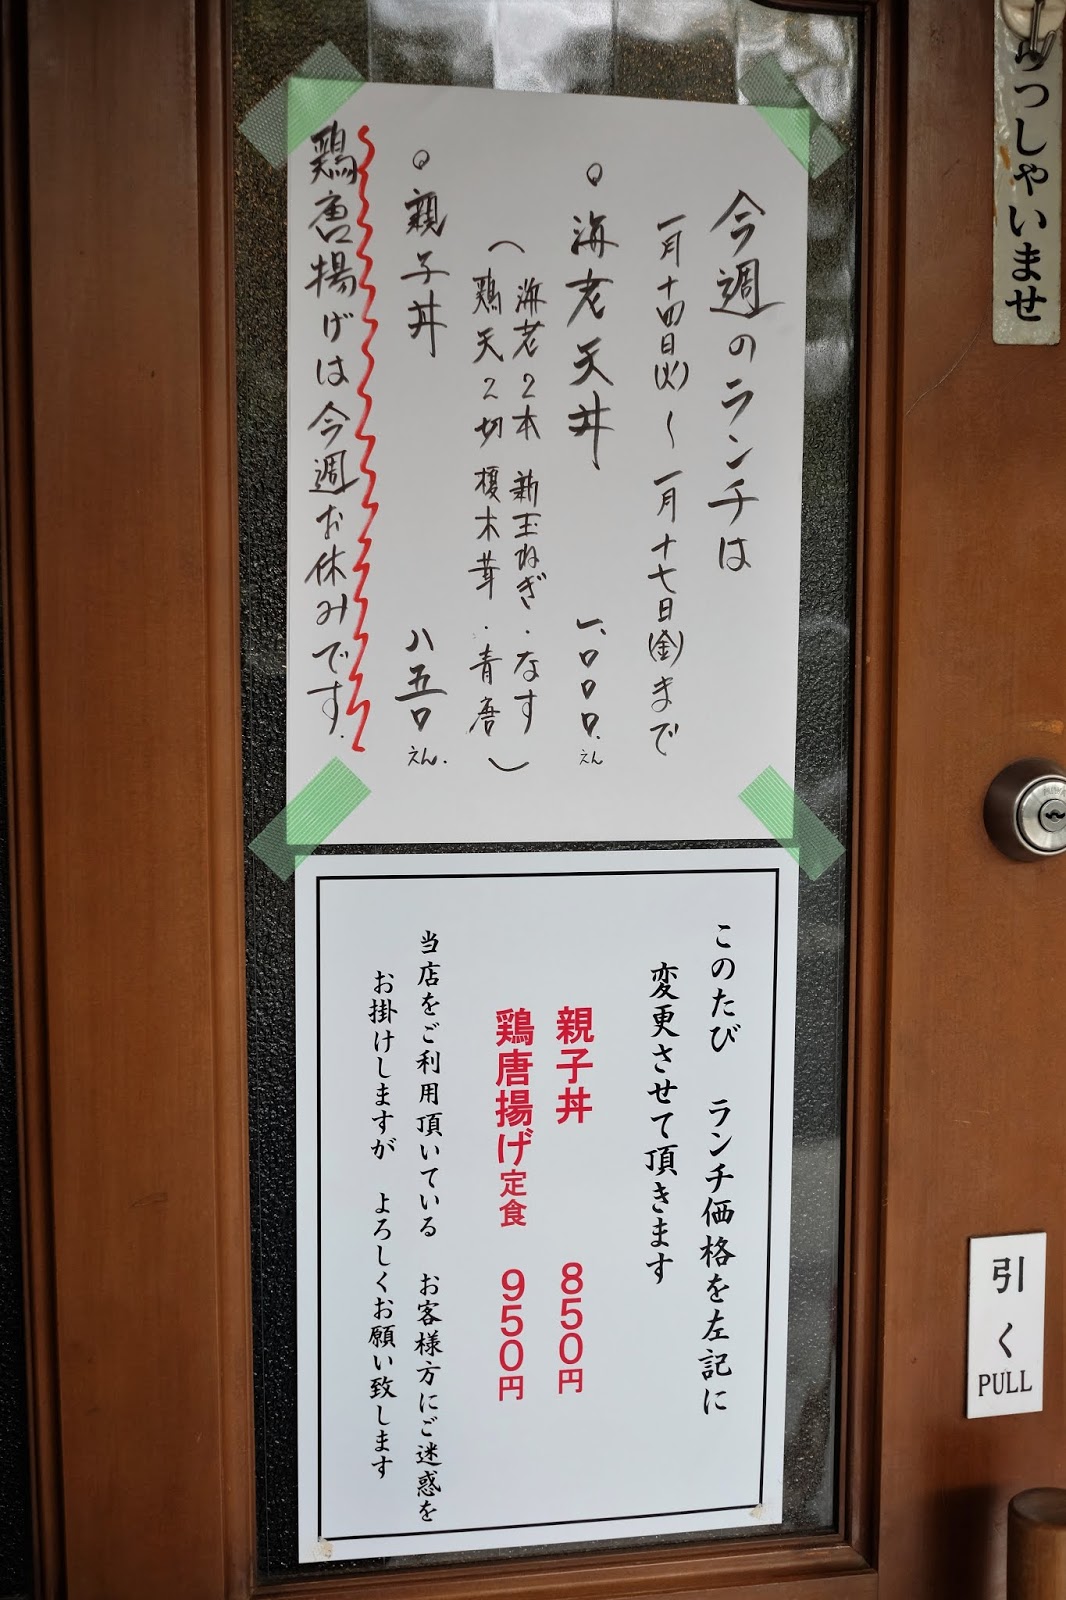 今週のランチは
一月十四日(火)〜一月十七日(金)まで
○海老天丼 一、〇〇〇、えん
(海老2本 新玉ねぎ・なす
鶏天2切 榎木茸・青唐)
○親子丼 八五〇えん.
鶏唐揚げは今週お休みです.
このたび ランチ価格を左記に
変更させて頂きます
親子丼 850円
鶏唐揚げ定食 950円
当店をご利用頂いている お客様方にご迷惑を
お掛けしますが よろしくお願い致します
っしゃいませ
引く
PULL